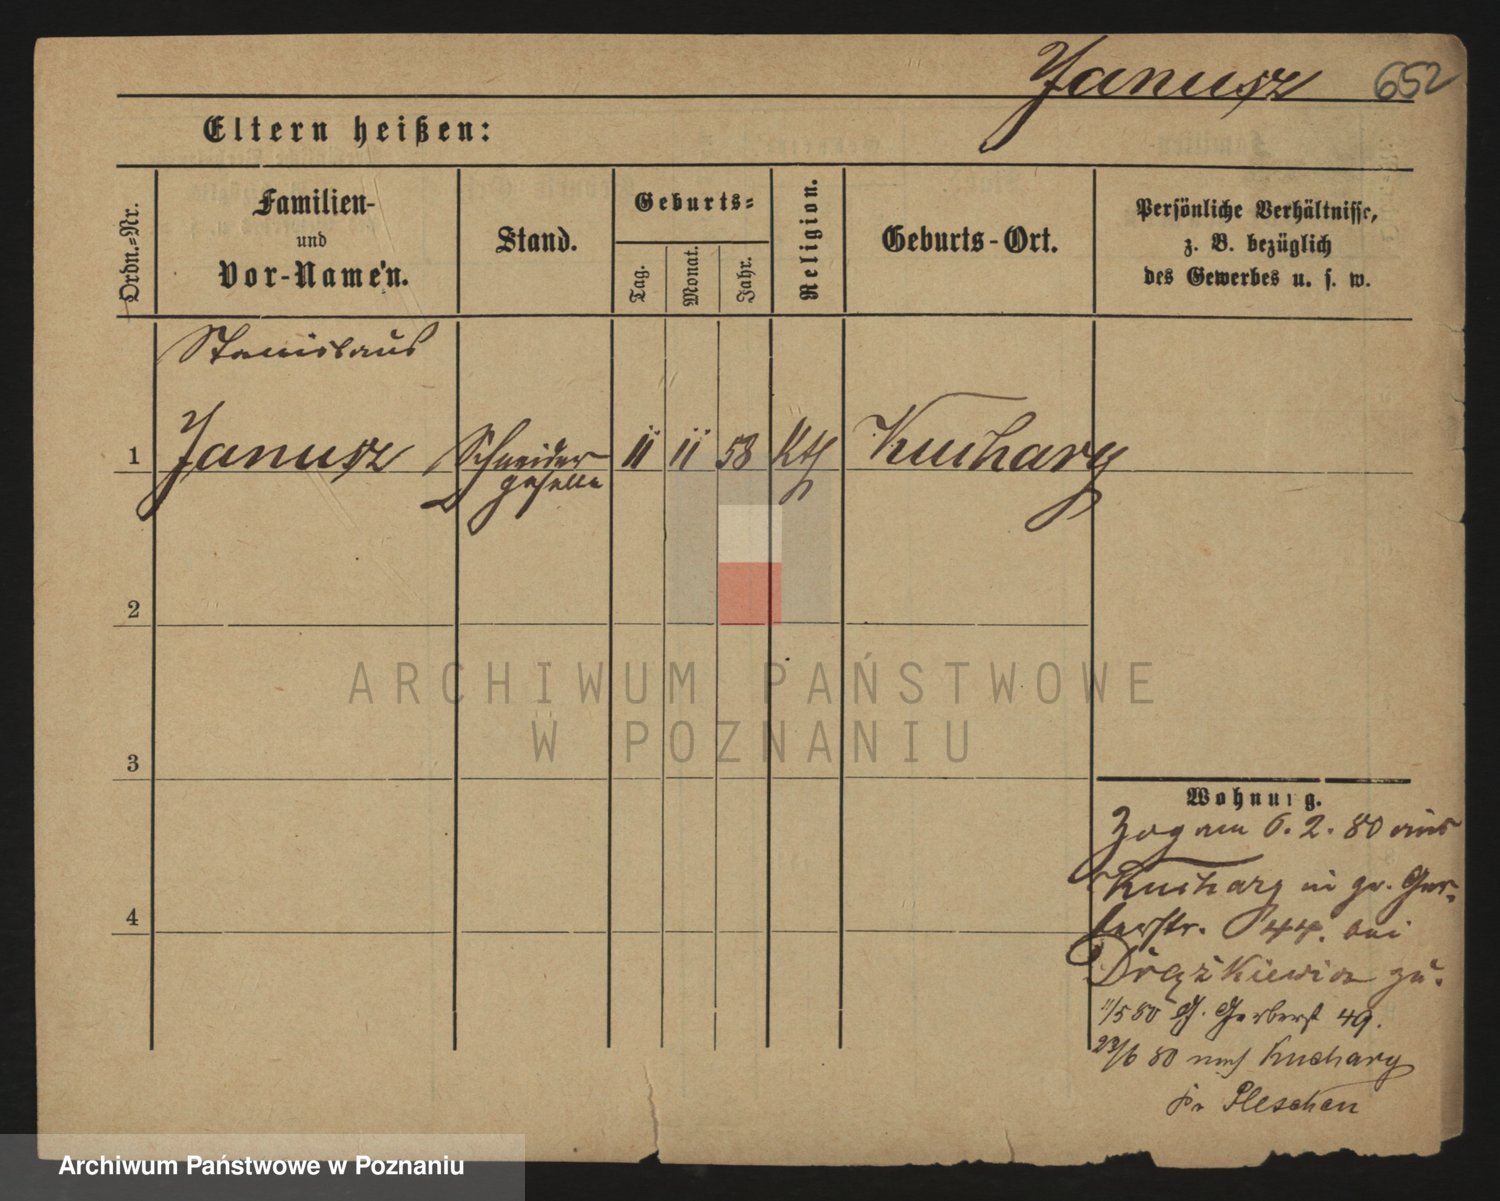 Janusz 652
Eltern heißen:
Ordn.=Nr.
Familien-
und
Vor-Namen.
Stand.
Geburts=
Tag.
Monat.
Jahr.
Religion.
Geburts-Ort.
Persönliche Verhältnisse,
z. B. bezüglich
des Gewerbes u. s. w.
Stanislaus
1 Janusz Schneider 11 11 58 Kth Kuchary
geselle
2
3
4
ARCHIWUM PAŃSTWOWE
W POZNANIU
Wohnung.
Zog am 6. 2. 80 aus
Kuchary in gr. Ger-
berstr. 44. bei
Drążkiewicz zu.
11/5 80 G. Gerberst 49.
23/6 80 nach Kuchary
Kr Pleschen
Archiwum Państwowe w Poznaniu